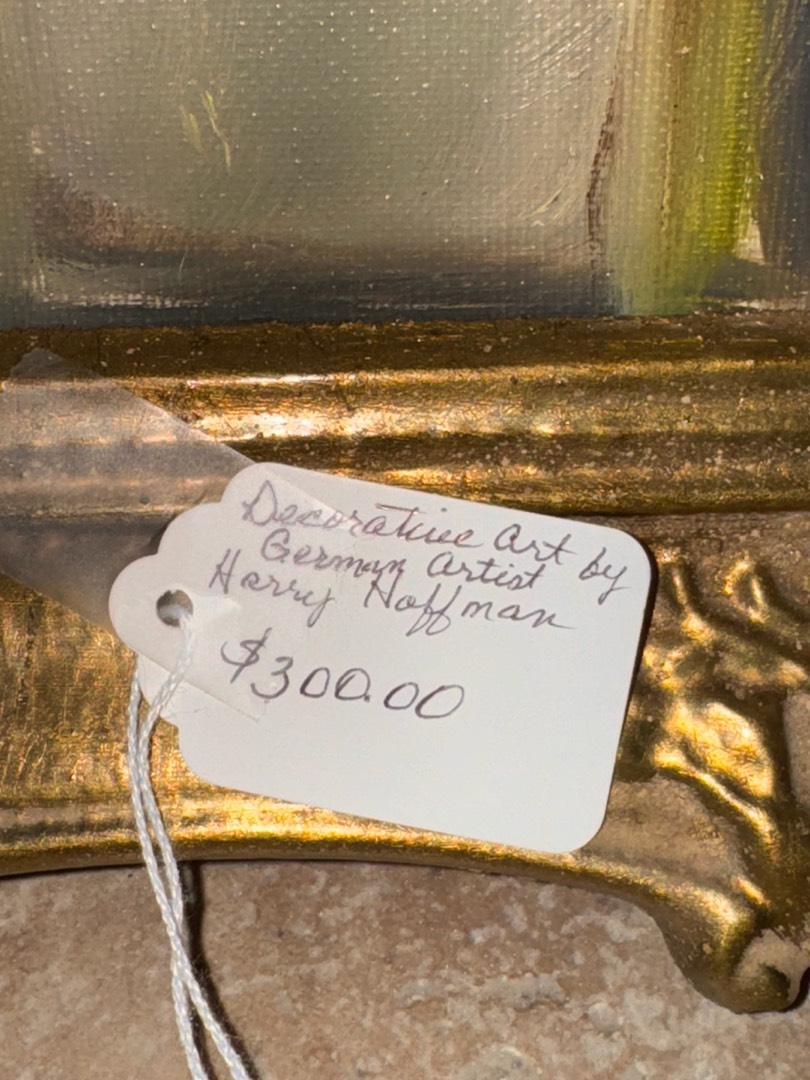 Decorative Art by
German Artist
Harry Hoffman
$300.00